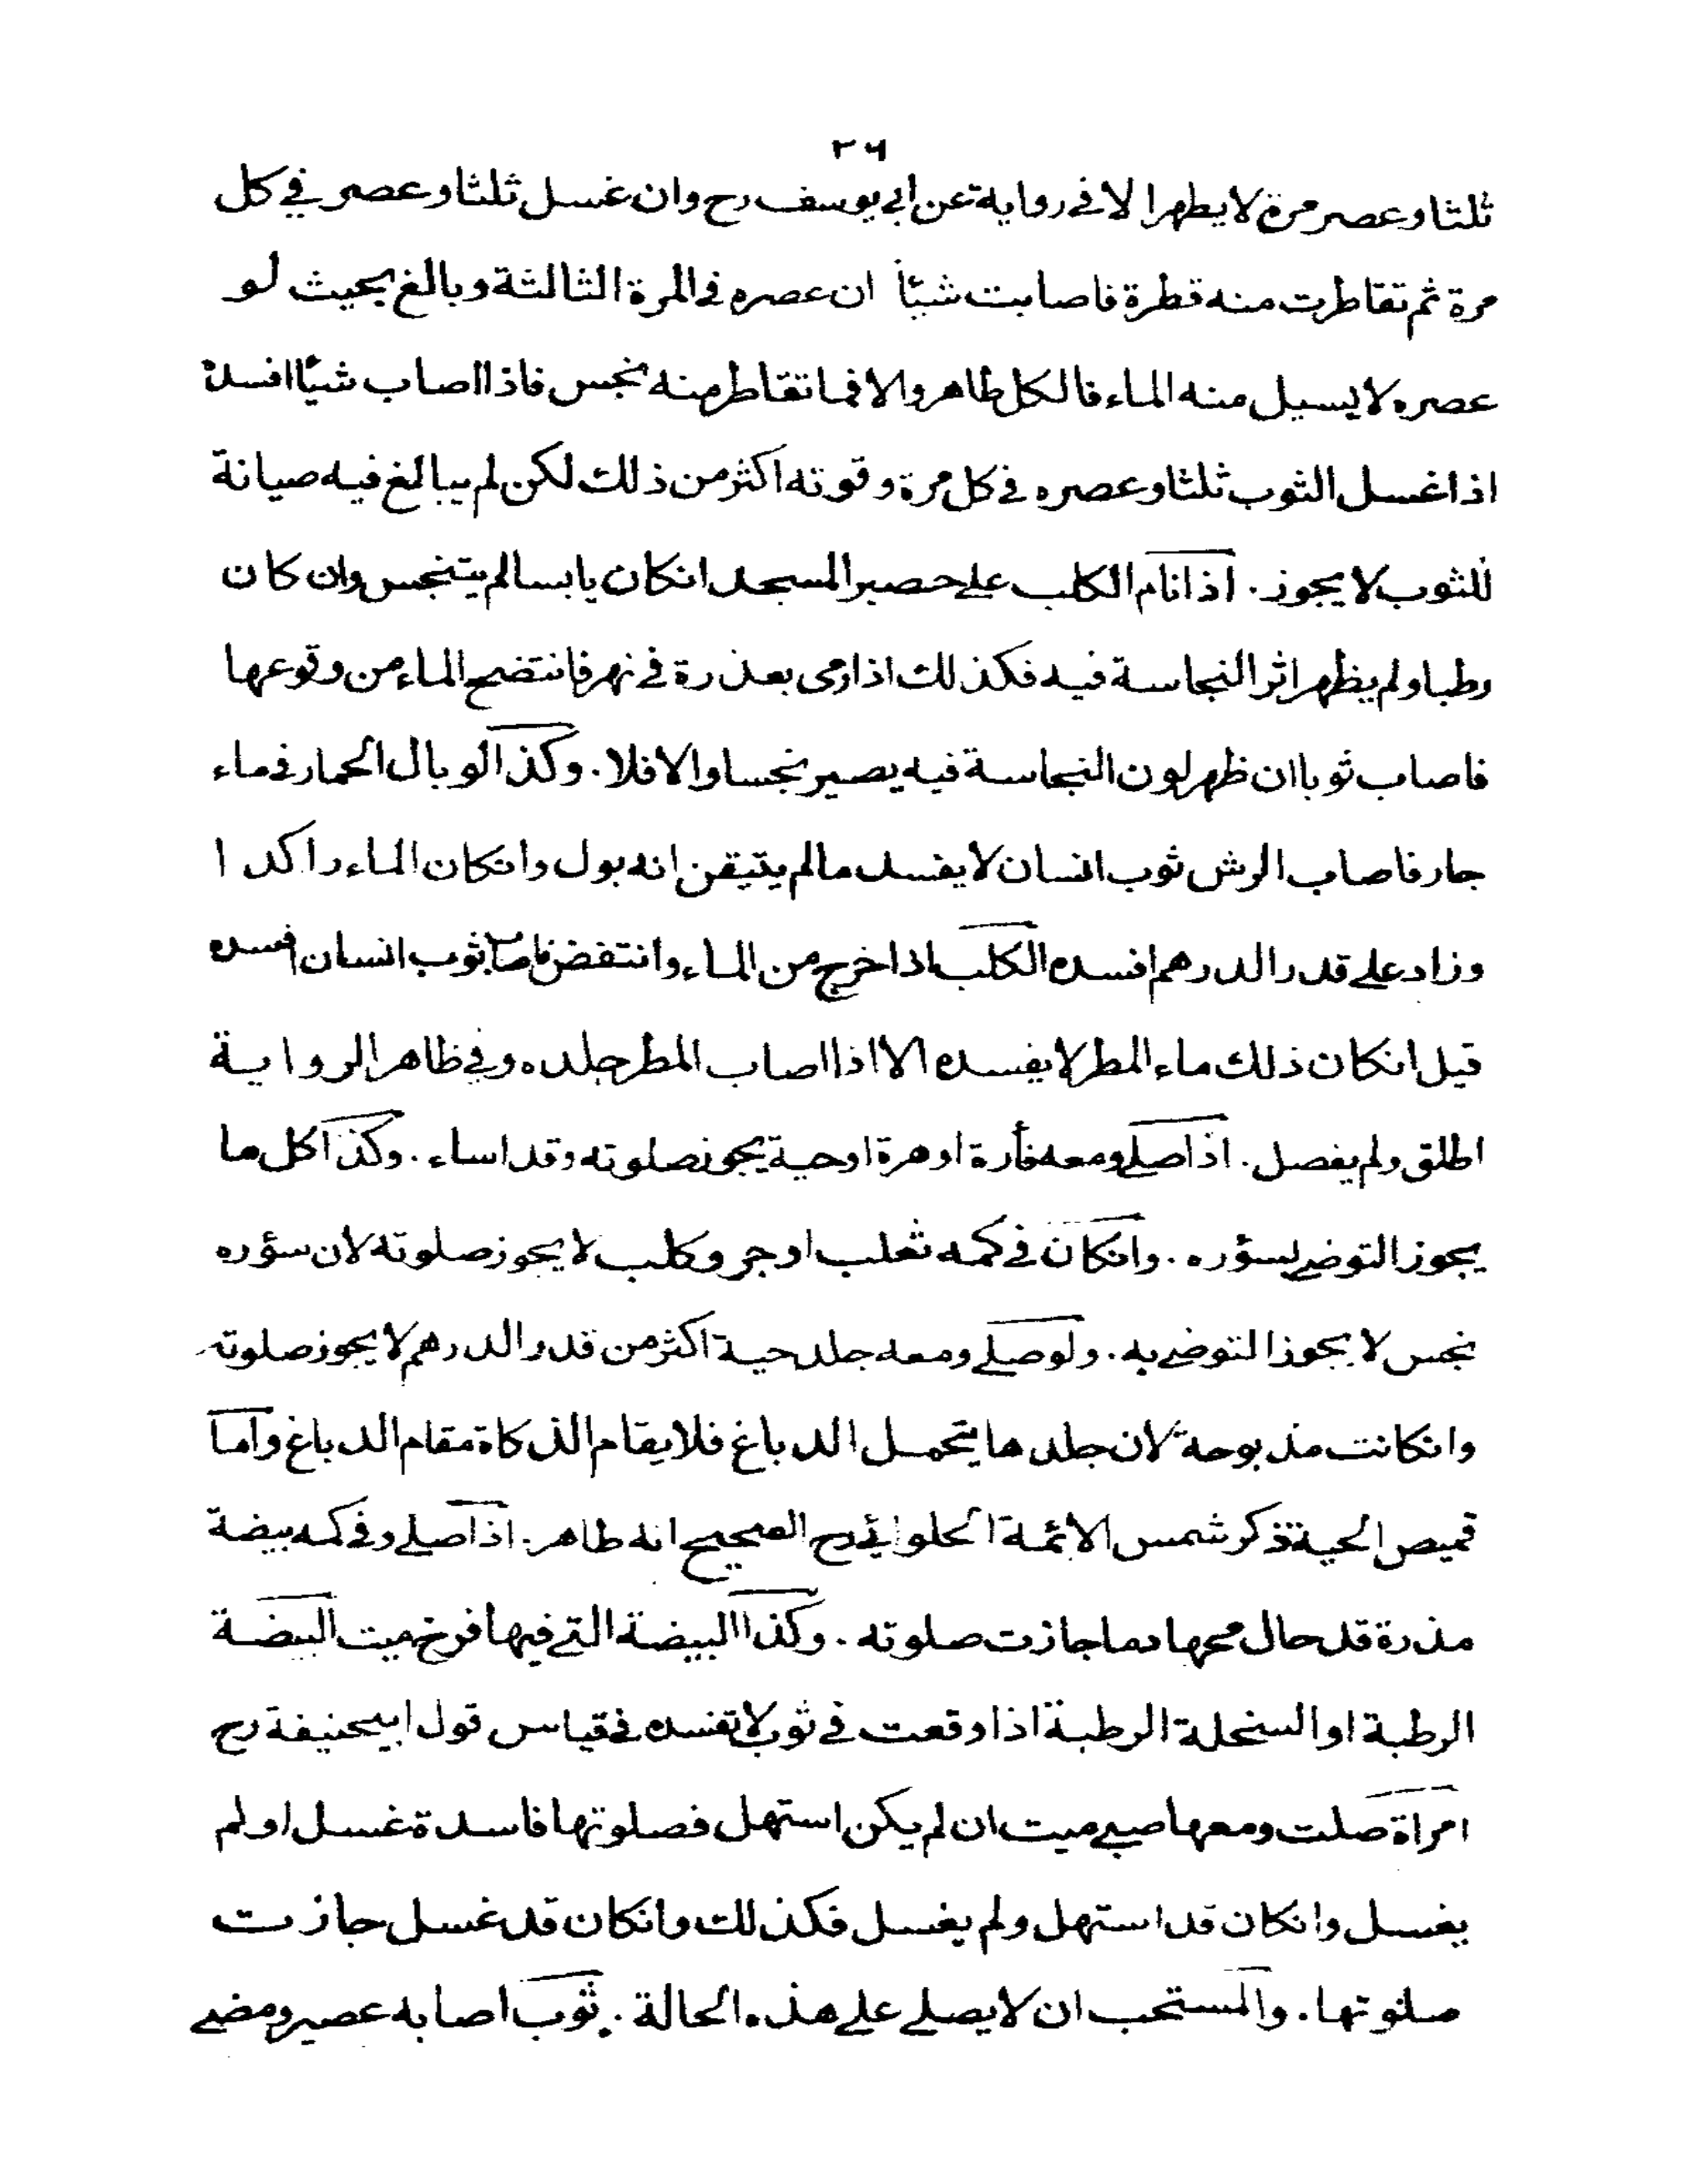 ٢٦
ثلثا وعصر مرة لا يطهر الا فى رواية عن ابى يوسف رح وان غسل ثلثا وعصر في كل
مرة ثم تقاطرت منه قطرة فاصابت شيئا ان عصره فى المرة الثالثة وبالغ بحيث لو
عصره لا يسيل منه الماء فالكل طاهر والا فما تقاطر منه نجس فاذا اصاب شيئا افسده
اذا غسل الثوب ثلثا وعصره فى كل مرة وقوته اكثر من ذلك لكن لم يبالغ فيه صيانة
للثوب لا يجوز. اذا نام الكلب على حصير المسجد انكان يابسا لم يتنجس وان كان
رطبا ولم يظهر اثر النجاسة فيه فكذلك اذا رمى بعذرة فى نهر فانتضح الماء من وقوعها
فاصاب ثوبا ان ظهر لون النجاسة فيه يصير نجسا والا فلا. وكذا لو بال الحمار فى ماء
جار فاصاب الرش ثوب انسان لا يفسد ما لم يتيقن انه بول وانكان الماء راكدا
وزاد على قدر الدرهم افسده الكلب اذا خرج من الماء وانتفض فاصاب ثوب انسان افسده
قيل انكان ذلك ماء المطر لا يفسده الا اذا اصاب المطر جلده وفي ظاهر الرواية
اطلق ولم يفصل. اذا صلى ومعه فأرة او هرة او حية يجوز صلوته وقد اساء. وكذا كل ما
يجوز التوضى بسؤره. وانكان فى كمه ثعلب او جرو كلب لا يجوز صلوته لان سؤره
نجس لا يجوز التوضى به. ولو صلى ومعه جلد حية اكثر من قدر الدرهم لا يجوز صلوته
وانكانت مذبوحة لان جلدها يتحمل الدباغ فلا يقام الذكاة مقام الدباغ واما
قميص الحية ذكر شمس الائمة الحلوائى رح الصحيح انه طاهر. اذا صلى وفى كمه بيضة
مذرة قد حال محها دما جازت صلوته. وكذا البيضة التى فيها فرخ ميت البيضة
الرطبة او السخلة الرطبة اذا وقعت فى ثوب لا تفسده فى قياس قول ابيحنيفة رح
امراة صلت ومعها صبى ميت ان لم يكن استهل فصلوتها فاسدة غسل او لم
يغسل وانكان قد استهل ولم يغسل فكذلك وانكان قد غسل جازت
صلوتها. والمستحب ان لا يصلى على هذه الحالة. ثوب اصابه عصير ومضى